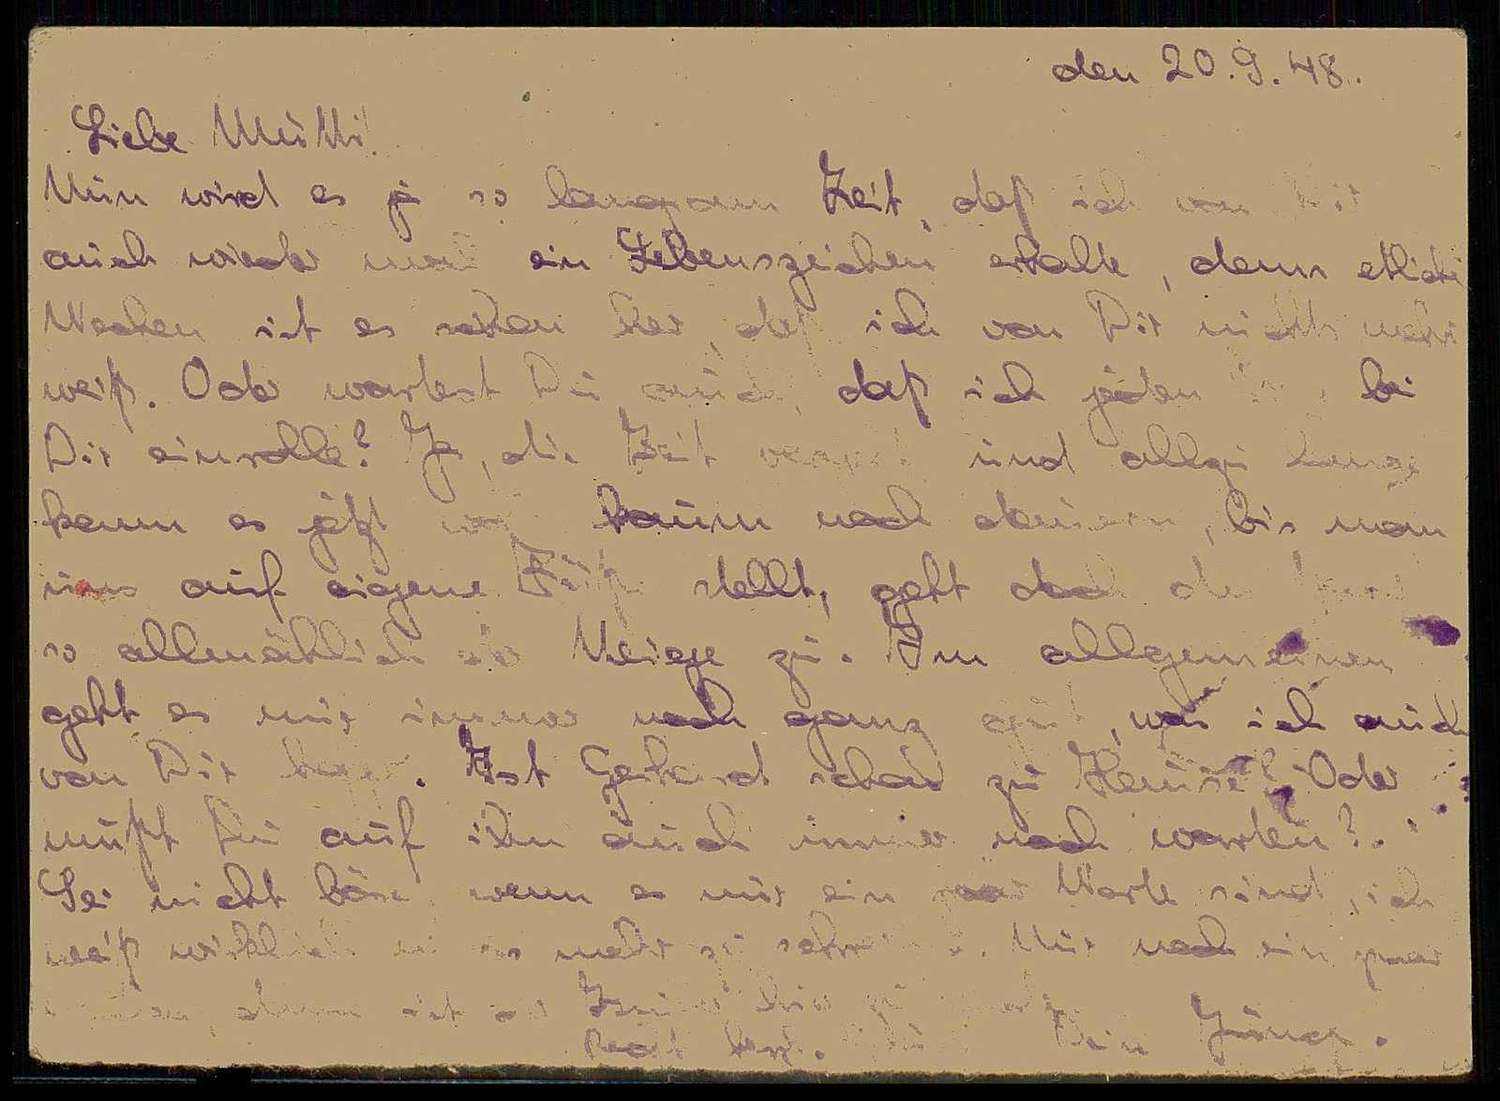 den 20.9.48.
Liebe Mutti!
Nun wird es ja so langsam Zeit, daß ich von Dir
auch wieder mal ein Lebenszeichen erhalte, denn etliche
Wochen ist es schon her, daß ich von Dir nichts mehr
weiß. Oder wartest Du auch, daß ich jeden bei
Dir einrolle? Ja, die Zeit und allzu lange
kann es jetzt kaum noch dauern, bis man
uns auf eigene Füße stellt, geht doch
so allmählich der Neige zu. Im allgemeinen
geht es mir immer noch ganz gut, was ich auch
von Dir hoffe. Ist Gerhard schon zu Hause? Oder
mußt Du auf ihn auch immer noch warten?
Sei nicht böse wenn es nur ein paar Worte sind, ich
weiß wirklich nichts mehr zu schreiben. Nur noch ein paar
dann ist
Recht herzl. Dein